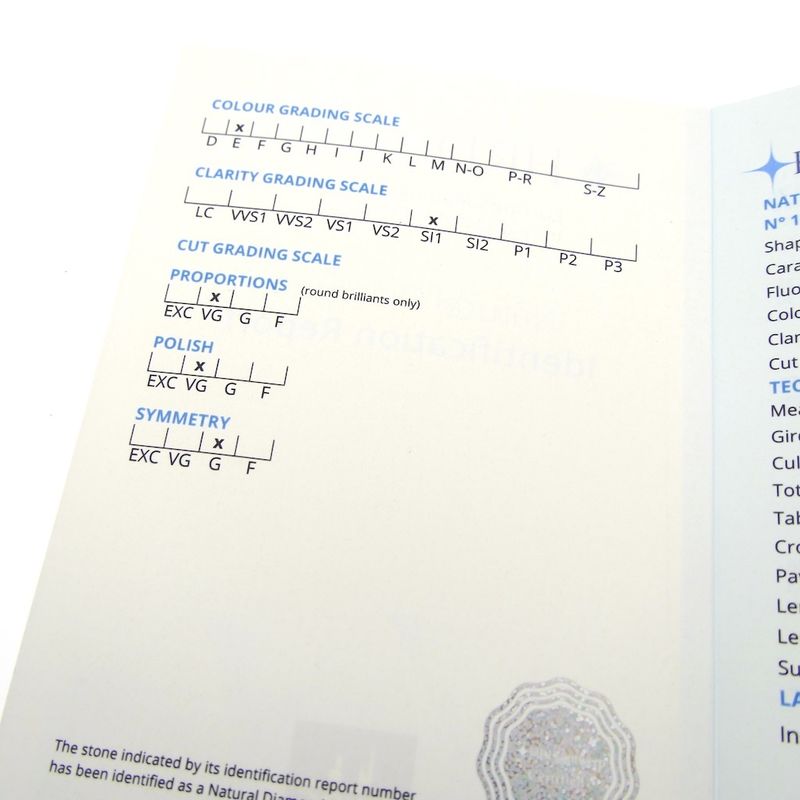 COLOUR GRADING SCALE
x
D E F G H I J K L M N-O P-R S-Z
CLARITY GRADING SCALE
x
LC VVS1 VVS2 VS1 VS2 SI1 SI2 P1 P2 P3
CUT GRADING SCALE
PROPORTIONS (round brilliants only)
x
EXC VG G F
POLISH
x
EXC VG G F
SYMMETRY
x
EXC VG G F
The stone indicated by its identification report number
has been identified as a Natural
NAT
N° 1
Shap
Cara
Fluo
Colo
Clar
Cut
TEC
Mea
Gird
Cul
Tot
Tab
Cro
Pav
Len
Le
Su
LA
In